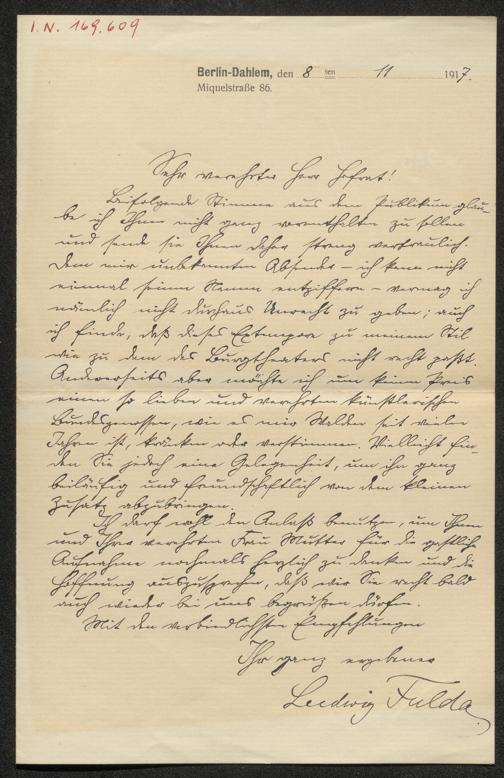 I.N. 169.609
Berlin-Dahlem, den 8 ten 11 1917.
Miquelstraße 86.
Sehr verehrter Herr Hofrat!
Beifolgende Stimme aus dem Publikum glau-
be ich Ihnen nicht ganz vorenthalten zu sollen
und sende sie Ihnen daher streng vertraulich.
Dem mir unbekannten Absender – ich kann nicht
einmal seinen Namen entziffern – vermag ich
nämlich nicht durchaus Unrecht zu geben; auch
ich finde, daß dieses Extempore zu meinem Stil
wie zu dem des Burgtheaters nicht recht paßt.
Andererseits aber möchte ich um keinen Preis
einen so lieben und verehrten künstlerischen
Bundesgenossen, wie es mir Walden seit vielen
Jahren ist, kränken oder verstimmen. Vielleicht fin-
den Sie jedoch eine Gelegenheit, um ihn ganz
beiläufig und freundschaftlich von dem kleinen
Zusatz abzubringen.
Ich darf wohl den Anlaß benutzen, um Ihnen
und Ihrer verehrten Frau Mutter für die gastliche
Aufnahme nochmals herzlich zu danken und die
Hoffnung auszusprechen, daß wir Sie recht bald
auch wieder bei uns begrüßen dürfen.
Mit den verbindlichsten Empfehlungen
Ihr ganz ergebener
Ludwig Fulda